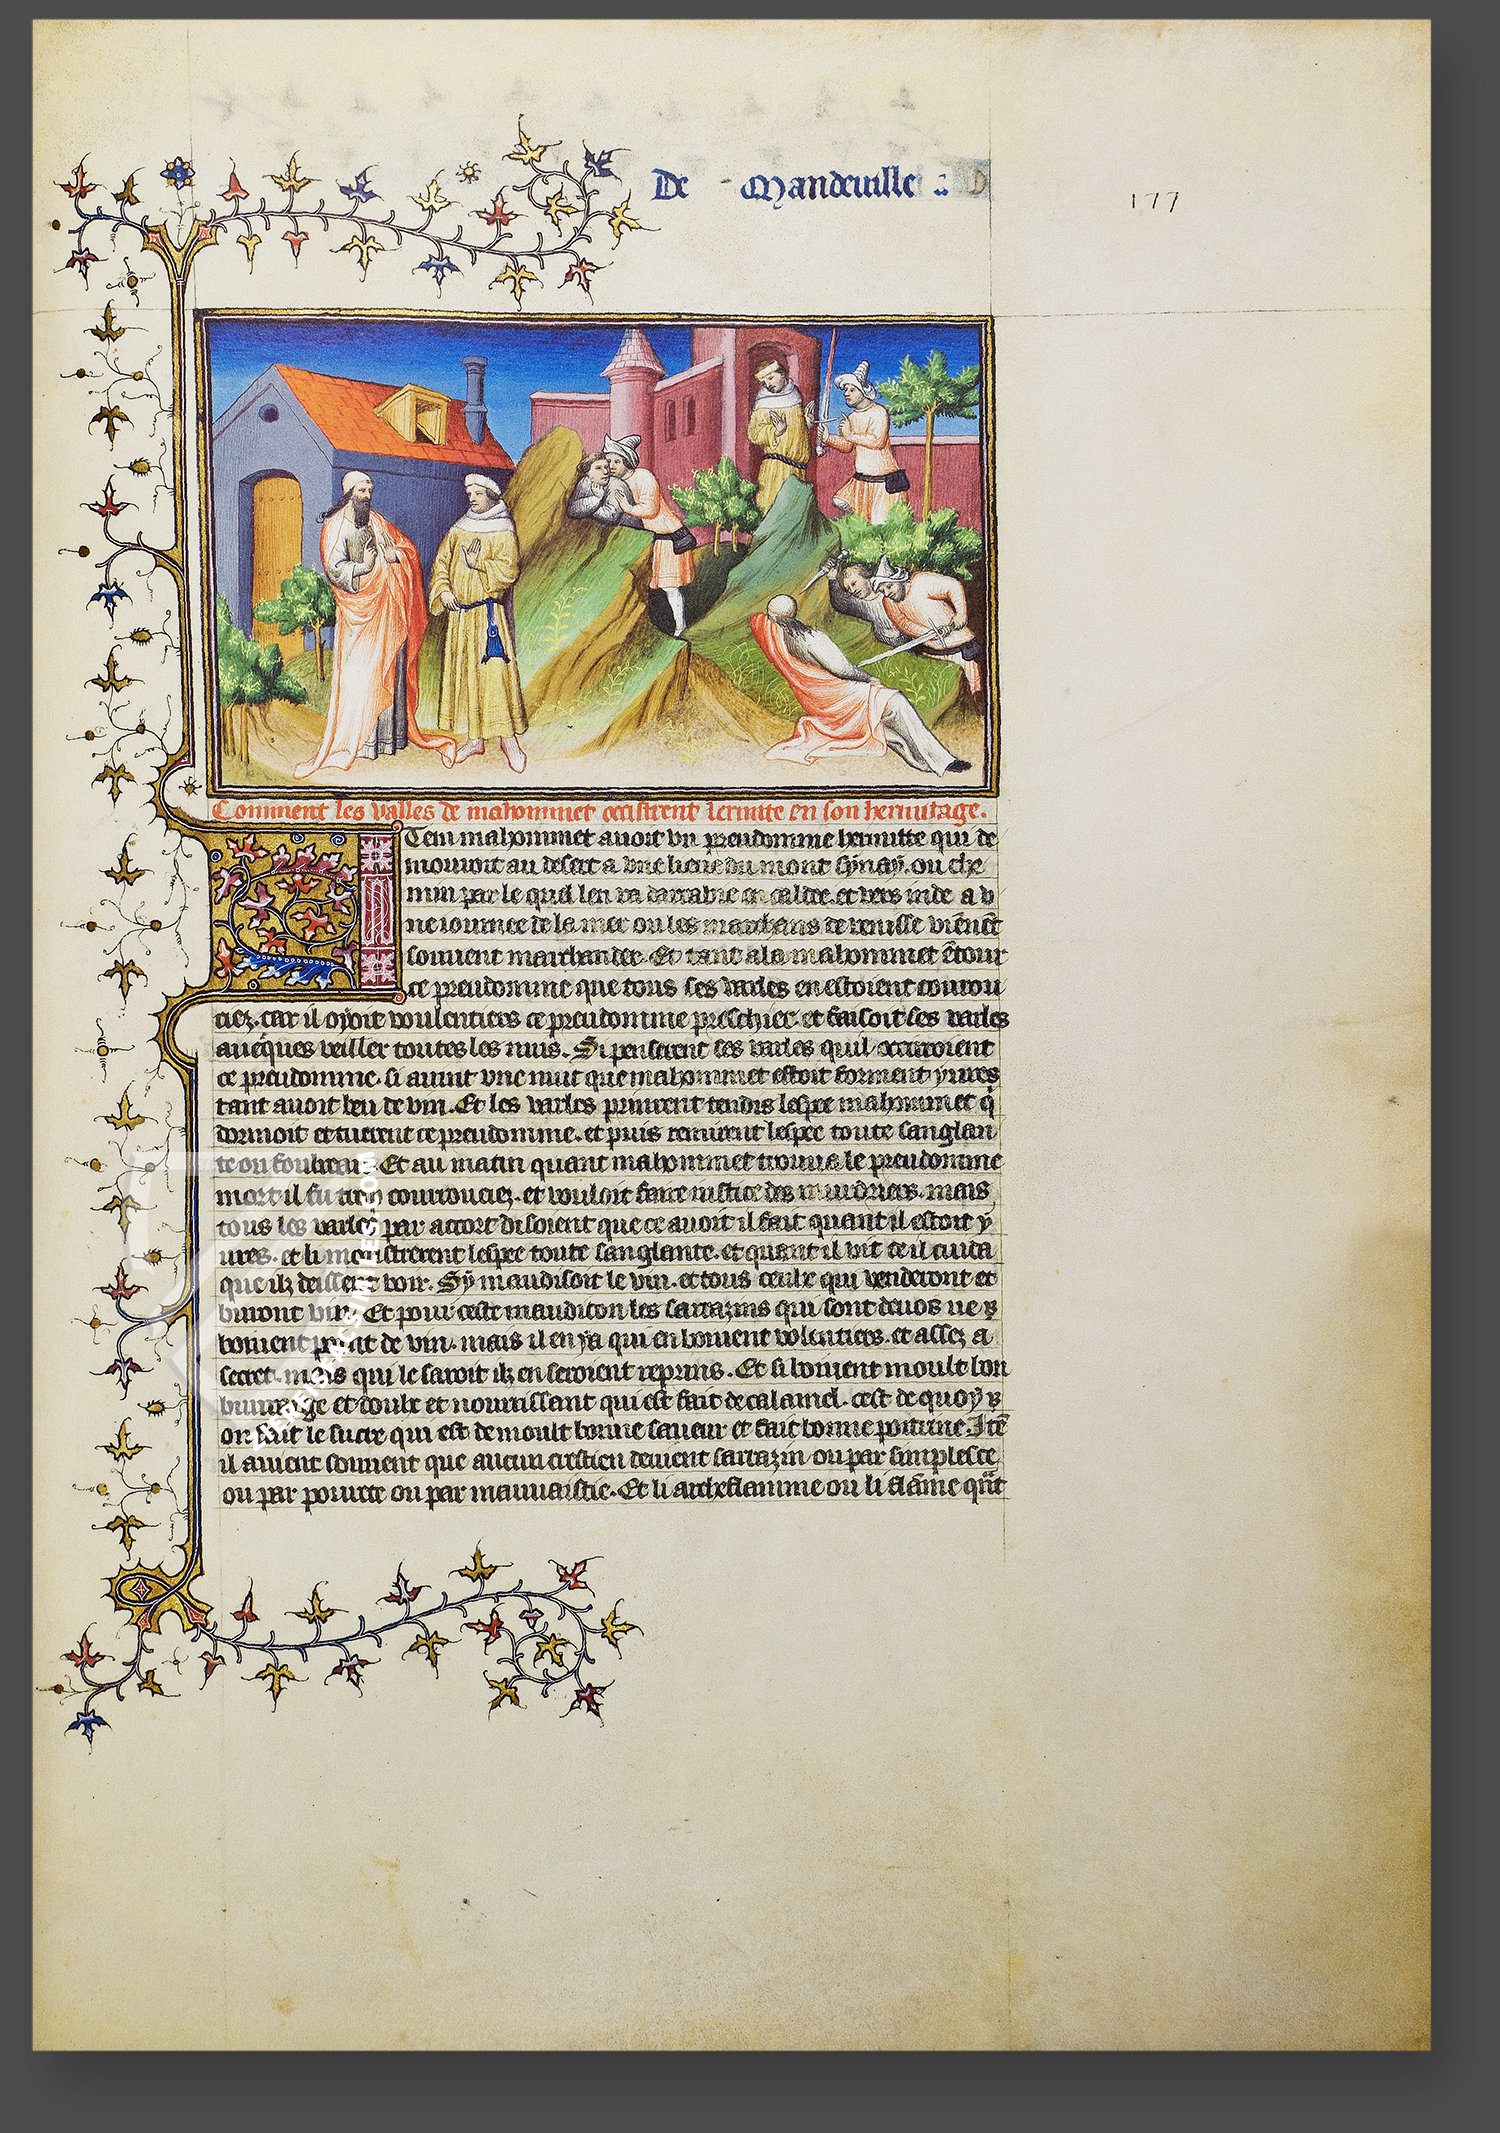 De Mandeuille :
177
Comment les valles de mahommet occistrent lermite en son hermitage.
Item mahommet auoit vn preudomme hermitte qui de
mouroit au desert a vne lieue du mont synay. ou che
min par le quel len va darrabie en caldee. et vers inde a v
ne iournee de la mer ou les marchans de venisse viēnēt
souuent marchander. Et tant ala mahommet
ce preudomme que tous ses varles en estoient courou
ciez. car il ooit voulentiers ce preudomme preschier. et faisoit ses varles
auecques veiller toutes les nuis. Si penserent ses varles quil occiroient
ce preudomme. si auint vne nuit que mahommet estoit forment yures
tant auoit beu de vin. Et les varles prinrent tendis lespee mahommet q̄
dormoit et tuerent ce preudomme. et puis remirent lespee toute sanglan
te ou fourreau. Et au matin quant mahommet trouua le preudomme
mort il fu courouciez. et vouloit faire iustice des murdriers. mais
tous les varles par accort disoient que ce auoit il fait quant il estoit y
ures. et li monstrerent lespee toute sanglante. et quant il vit ce il cuida
que ilz deissent voir. Sy maudisoit le vin. et tous ceulx qui venderont et
buront vin. Et pour ceste maudicon les sarrazins qui sont deuos ne
boiuent point de vin. mais il en ya qui en boiuent volentiers. et assez a
secret. mais qui le saroit ilz en seroient reprins. Et si boiuent moult bon
buurage et doulx et nourrissant qui est fait de calamel. cest de quoy
on fait le sucre qui est de moult bonne saueur et fait bonne poitrine. Itē
il auient souuent que aucun crestien deuient sarrazin ou par simplesce
ou par pourete ou par mauuaistie. Et li archeflamme ou li flāme quāt
ZIEREIS FACSIMILES.COM